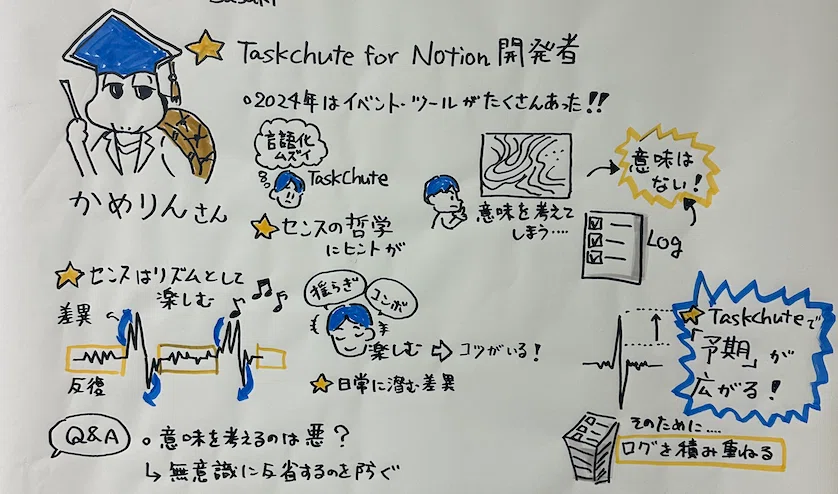 Taskchute for Notion 開発者
○2024年はイベント・ツールがたくさんあった!!
言語化
ムズイ
Taskchute
かめりんさん
センスの哲学
にヒントが
意味を考えて
しまう....
意味は
ない!
Log
センスはリズムとして
楽しむ
差異
反復
揺らぎ
コンボ
楽しむ ⇨ コツがいる!
日常に潜む差異
Taskchuteで
「予期」が
広がる!
そのために....
ログを積み重ねる
Q&A
○意味を考えるのは悪?
↳ 無意識に反省するのを防ぐ